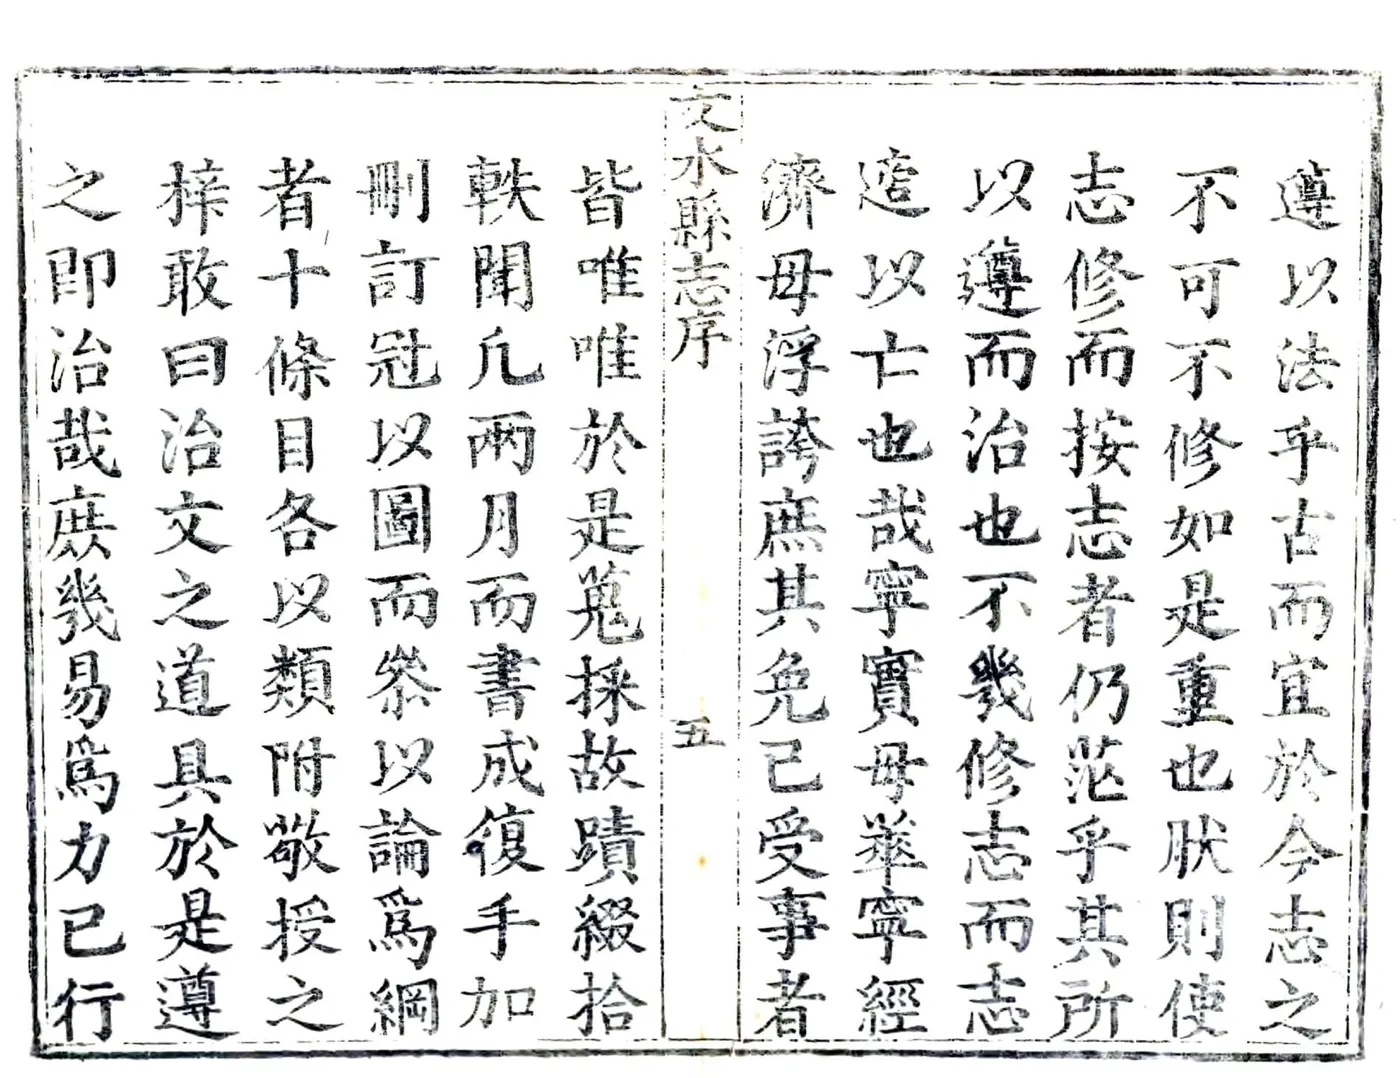 遵以法乎古而宜於今志之
不可不修如是重也肰則使
志修而按志者仍茫乎其所
以遵而治也不幾修志而志
遮以亡也哉寧實毋華寧經
濟毋浮誇庶其免已受事者
文水縣志序
五
皆唯唯於是蒐採故蹟綴拾
軼聞凡兩月而書成復手加
刪訂冠以圖而叅以論爲綱
者十條目各以類附敬授之
梓敢曰治文之道具於是遵
之即治哉庶幾易爲力已行